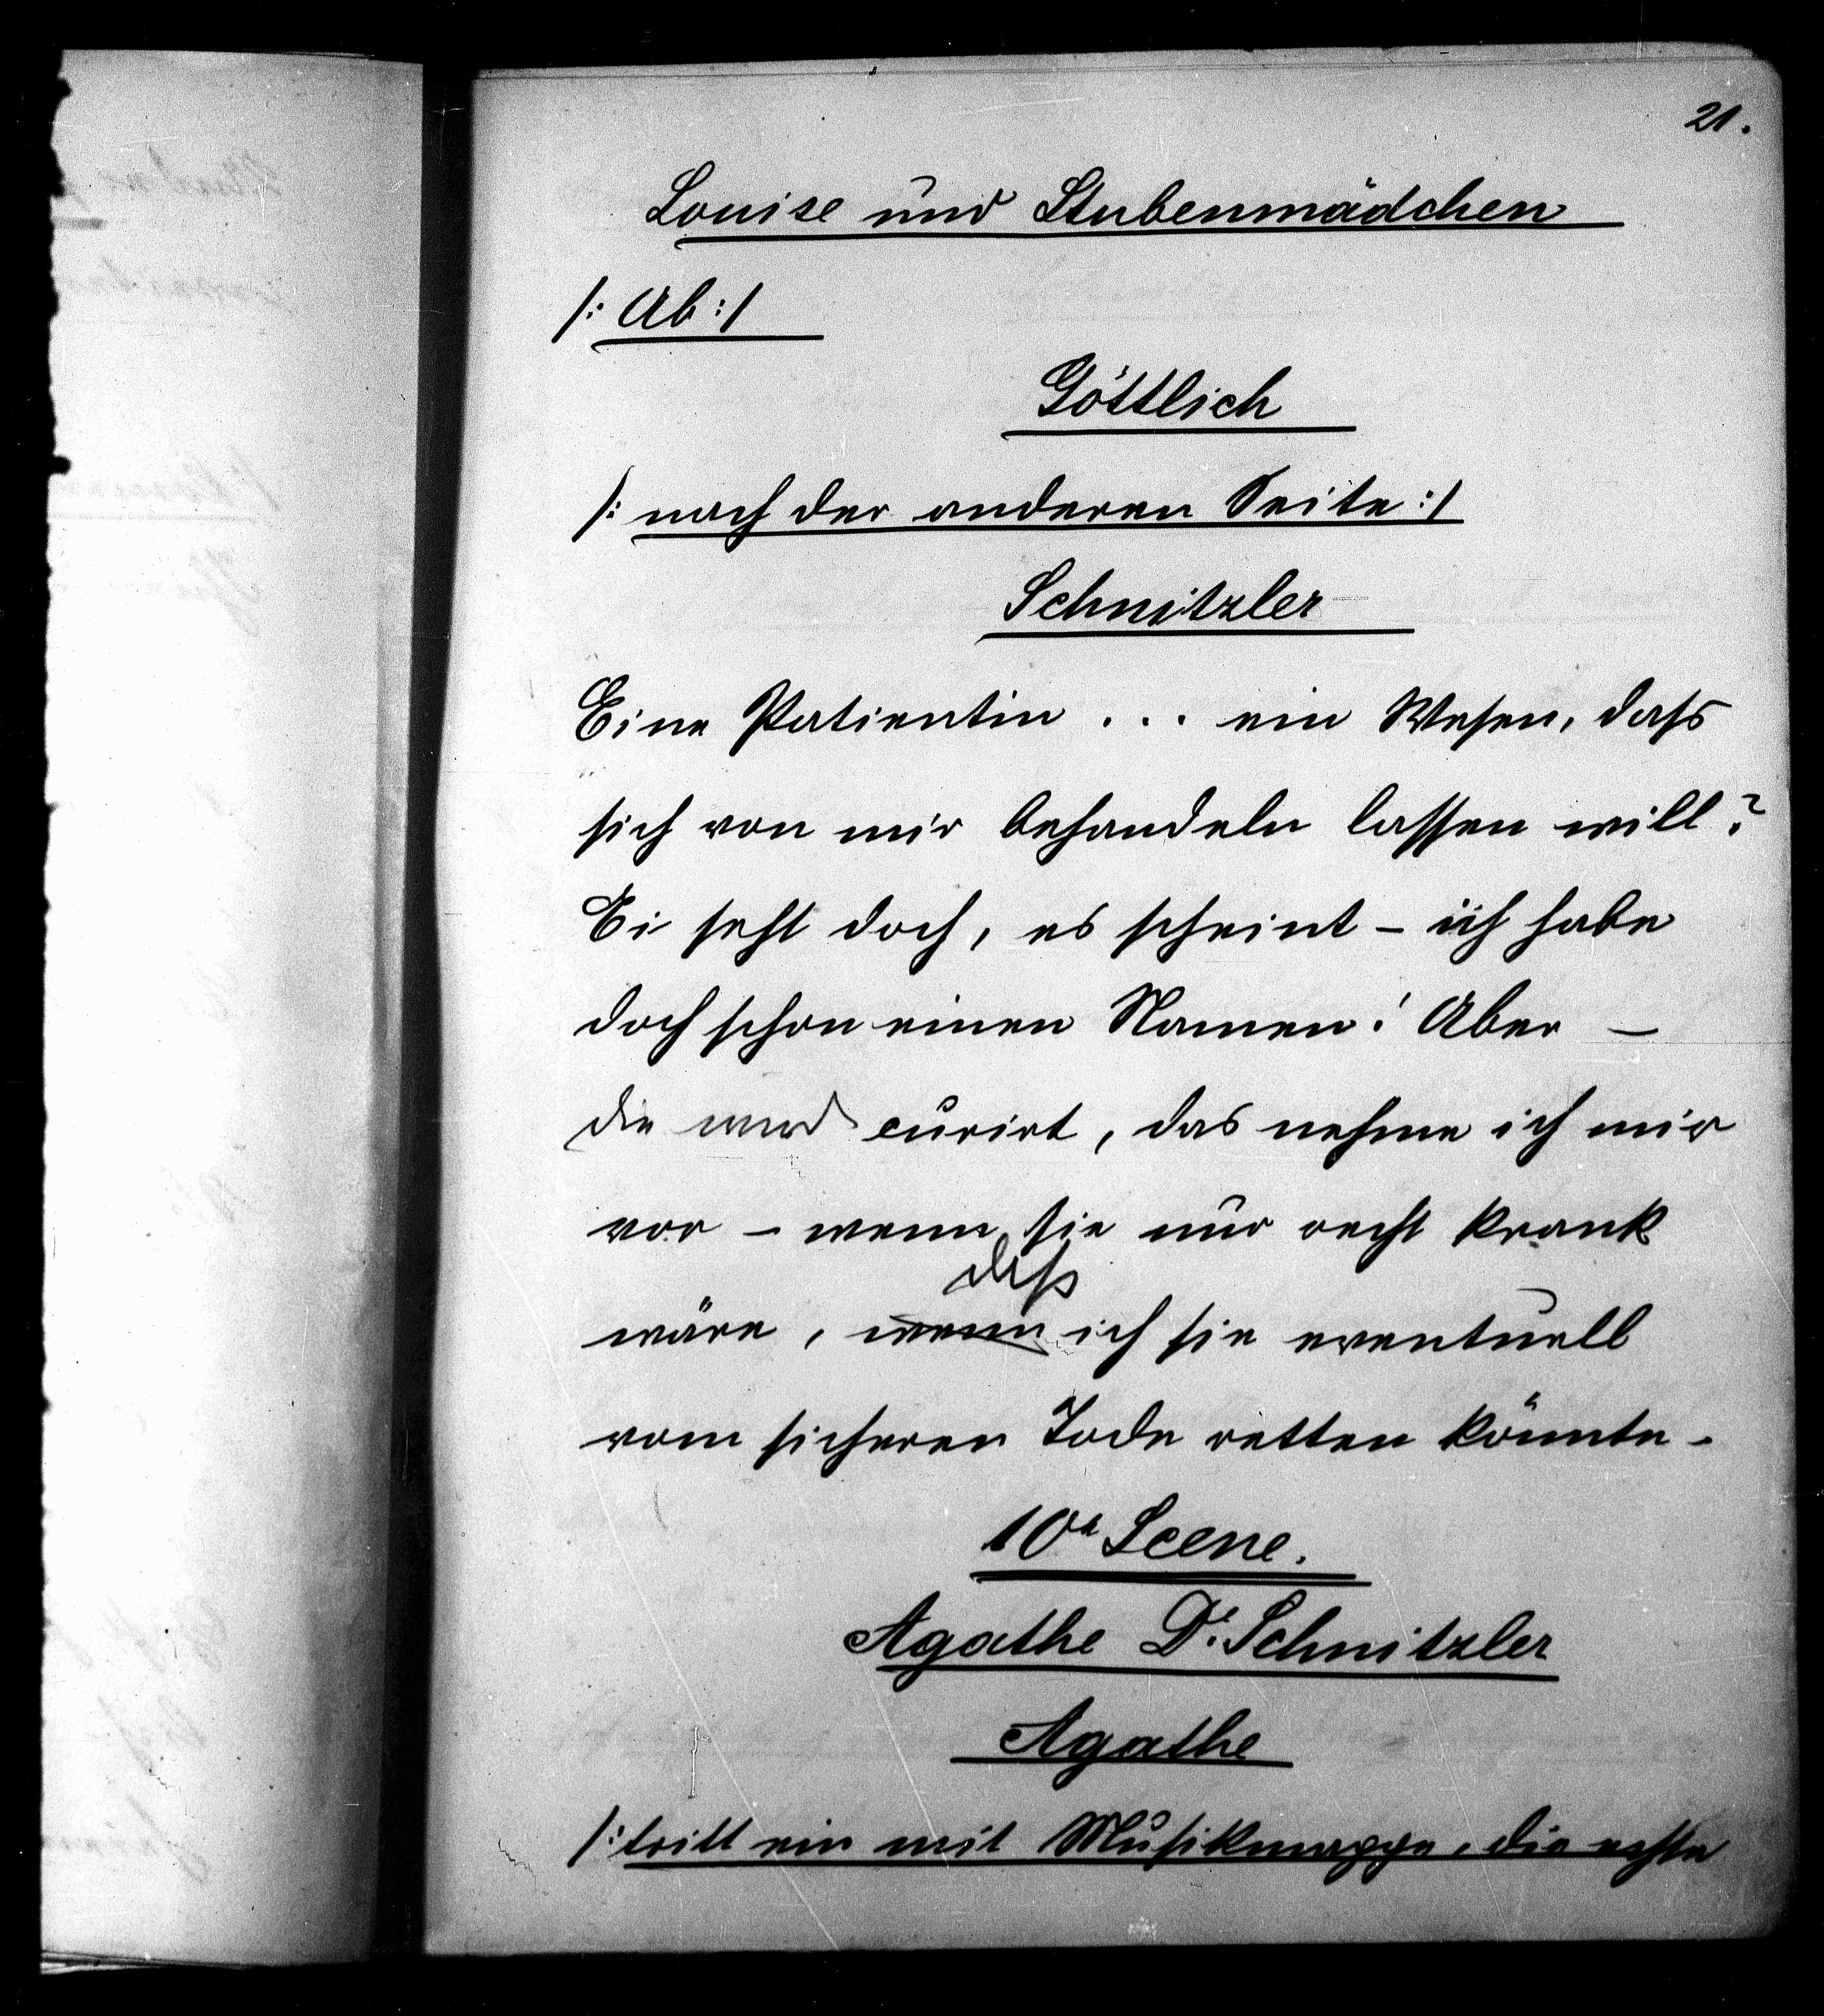 21.
Louise und Stubenmädchen
/: Ab :/
Göttlich
/: nach der anderen Seite :/
Schnitzler
Eine Patientin ... ein Wesen, dass
sich von mir behandeln lassen will?
Ei seht doch, es scheint – ich habe
doch schon einen Namen! Aber –
die wird curirt, das nehme ich mir
vor – wenn sie nur recht krank
daß
wäre, wenn ich sie eventuell
vom sicheren Tode retten könnte –
10te Scene.
Agathe Dr. Schnitzler
Agathe
/: tritt ein mit Musikmappe, die echte